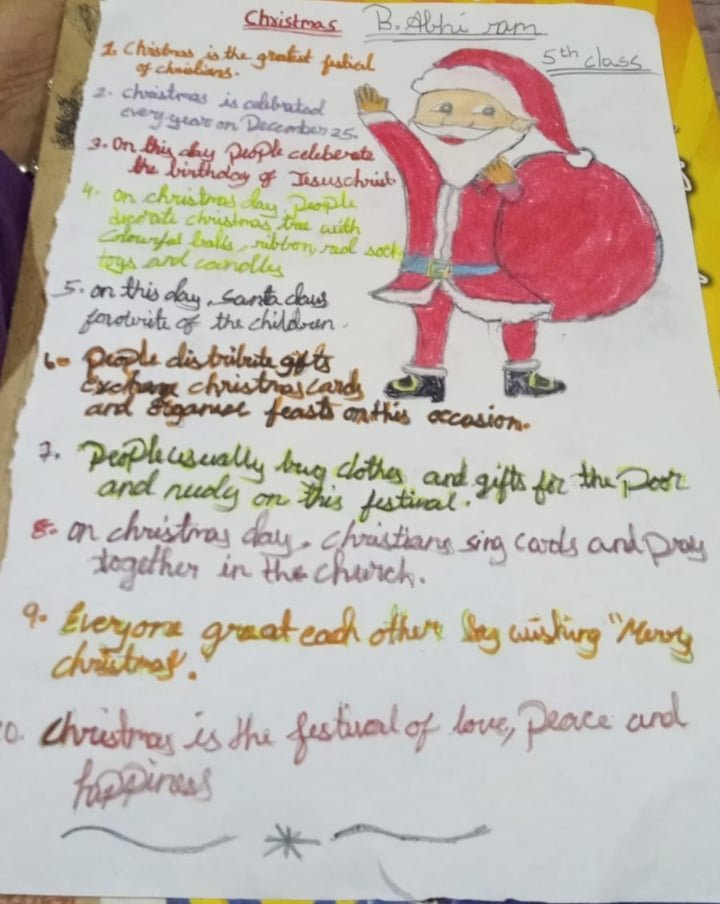 Christmas
B. Abhi ram
5th class
1. Christmas is the greatest festial
of christians.
2. christmas is celebrated
every year on December 25.
3. On this day people celeberate
the birthday of Jesuschrist.
4. on christmas day people
decorate christmas tree with
colourful balls, ribbon, red sock
toys and candles
5. on this day, santa claus
forowrite of the children.
6. People distribute gifts
exchange christmas cards
and organise feasts on this occasion.
7. People usually buy clothes and gifts for the poor
and needy on this festival.
8. on christmas day. christians sing carols and pray
together in the church.
9. Everyone great each other by wishing "Merry
christmas".
10. christmas is the festival of love, peace and
happiness